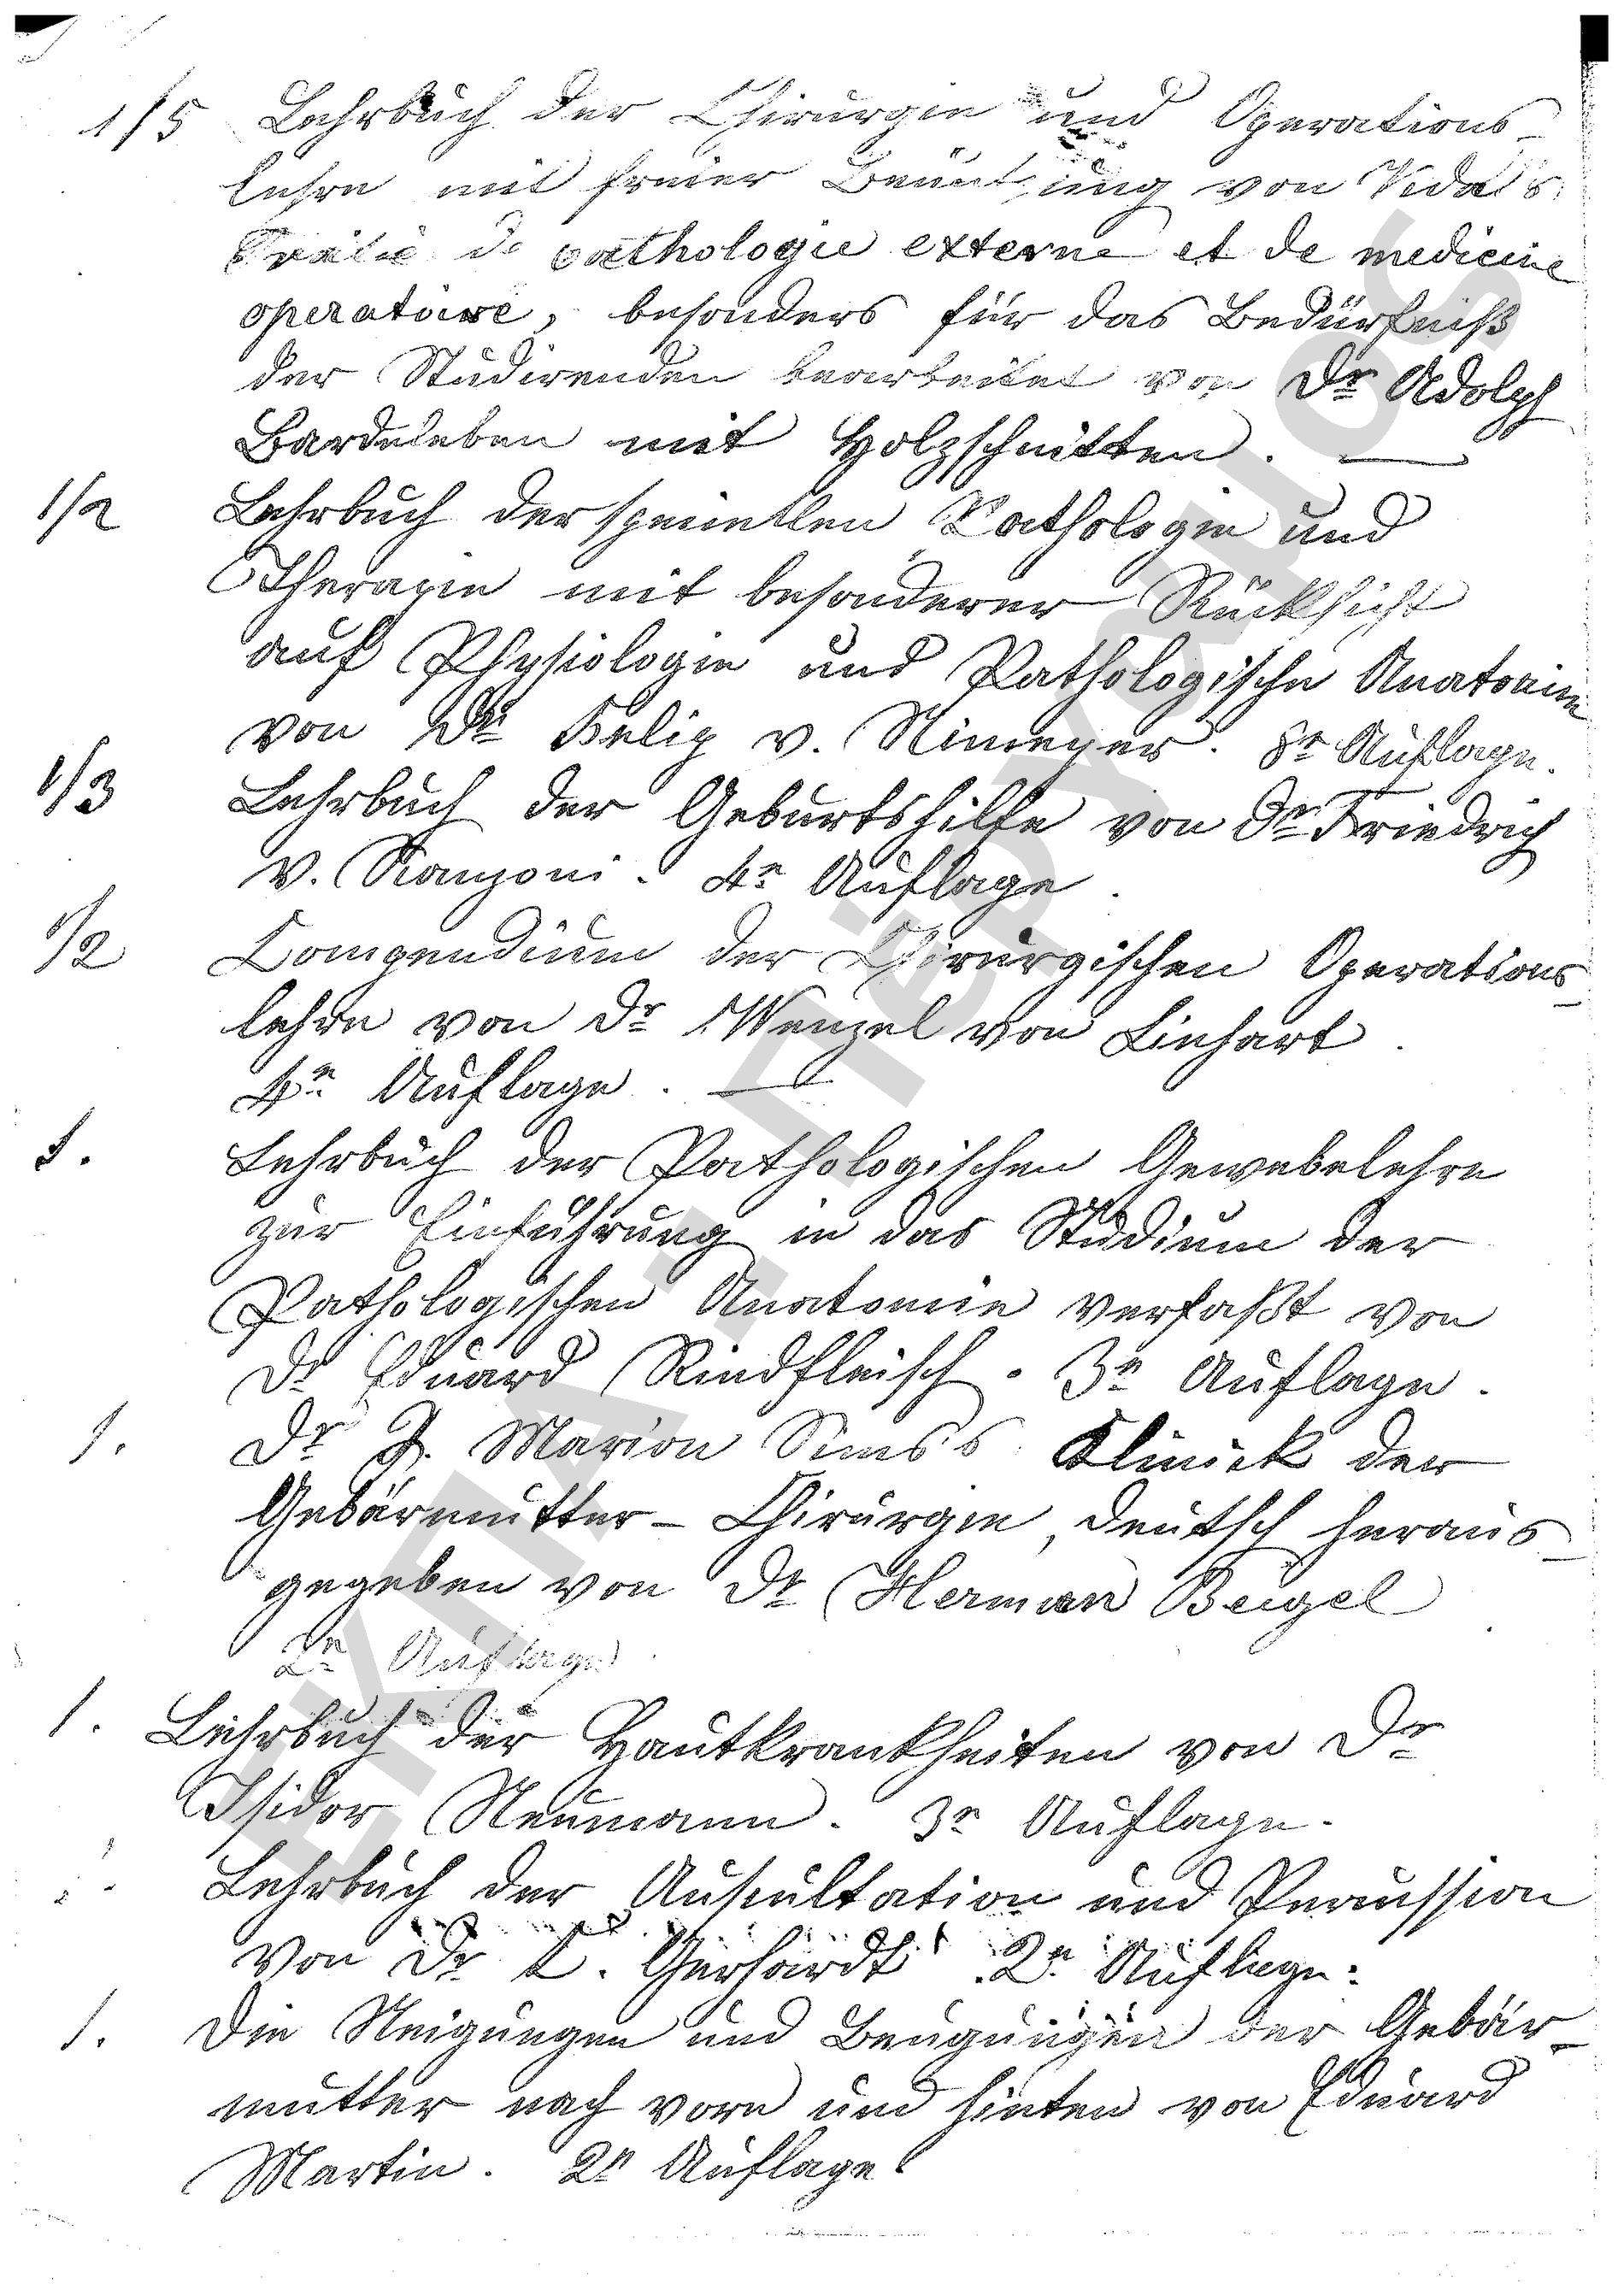 1/5 Lehrbuch der Chirurgie und Operations-
lehre mit freier Benützung von Vidal's
Traité de pathologie externe et de medicine
operatoire, besonders für das Bedürfniß
der Studirenden bearbeitet von Dr Adolph
Bardeleben mit Holzschnitten. —
1/2 Lehrbuch der speciellen Pathologie und
Therapie mit besonderer Rücksicht
auf Physiologie und Pathologische Anatomie
von Dr Felix v. Niemeyer. 8e Auflage.
1/3 Lehrbuch der Geburtshilfe von Dr Friedrich
v. Scanzoni. 4e Auflage.
1/2 Compendium der Chirurgischen Operations-
lehre von Dr Wenzel von Linhart.
4e Auflage. —
1. Lehrbuch der Pathologischen Gewebelehre
zur Einführung in das Studium der
Pathologischen Anatomie verfaßt von
Dr Eduard Rindfleisch. 3e Auflage.
1. Dr J. Marion Sims's Klinick der
Gebärmutter-Chirurgie, deutsch heraus-
gegeben von Dr Herman Beigel
2e Auflage.
1. Lehrbuch der Hautkrankheiten von Dr
Isidor Neumann. 3e Auflage.
Lehrbuch der Auscultation und Percussion
von Dr C. Gerhardt. 2e Auflage.
1. Die Neigungen und Beugungen der Gebär-
mutter nach vorn und hinten von Eduard
Martin. 2e Auflage.